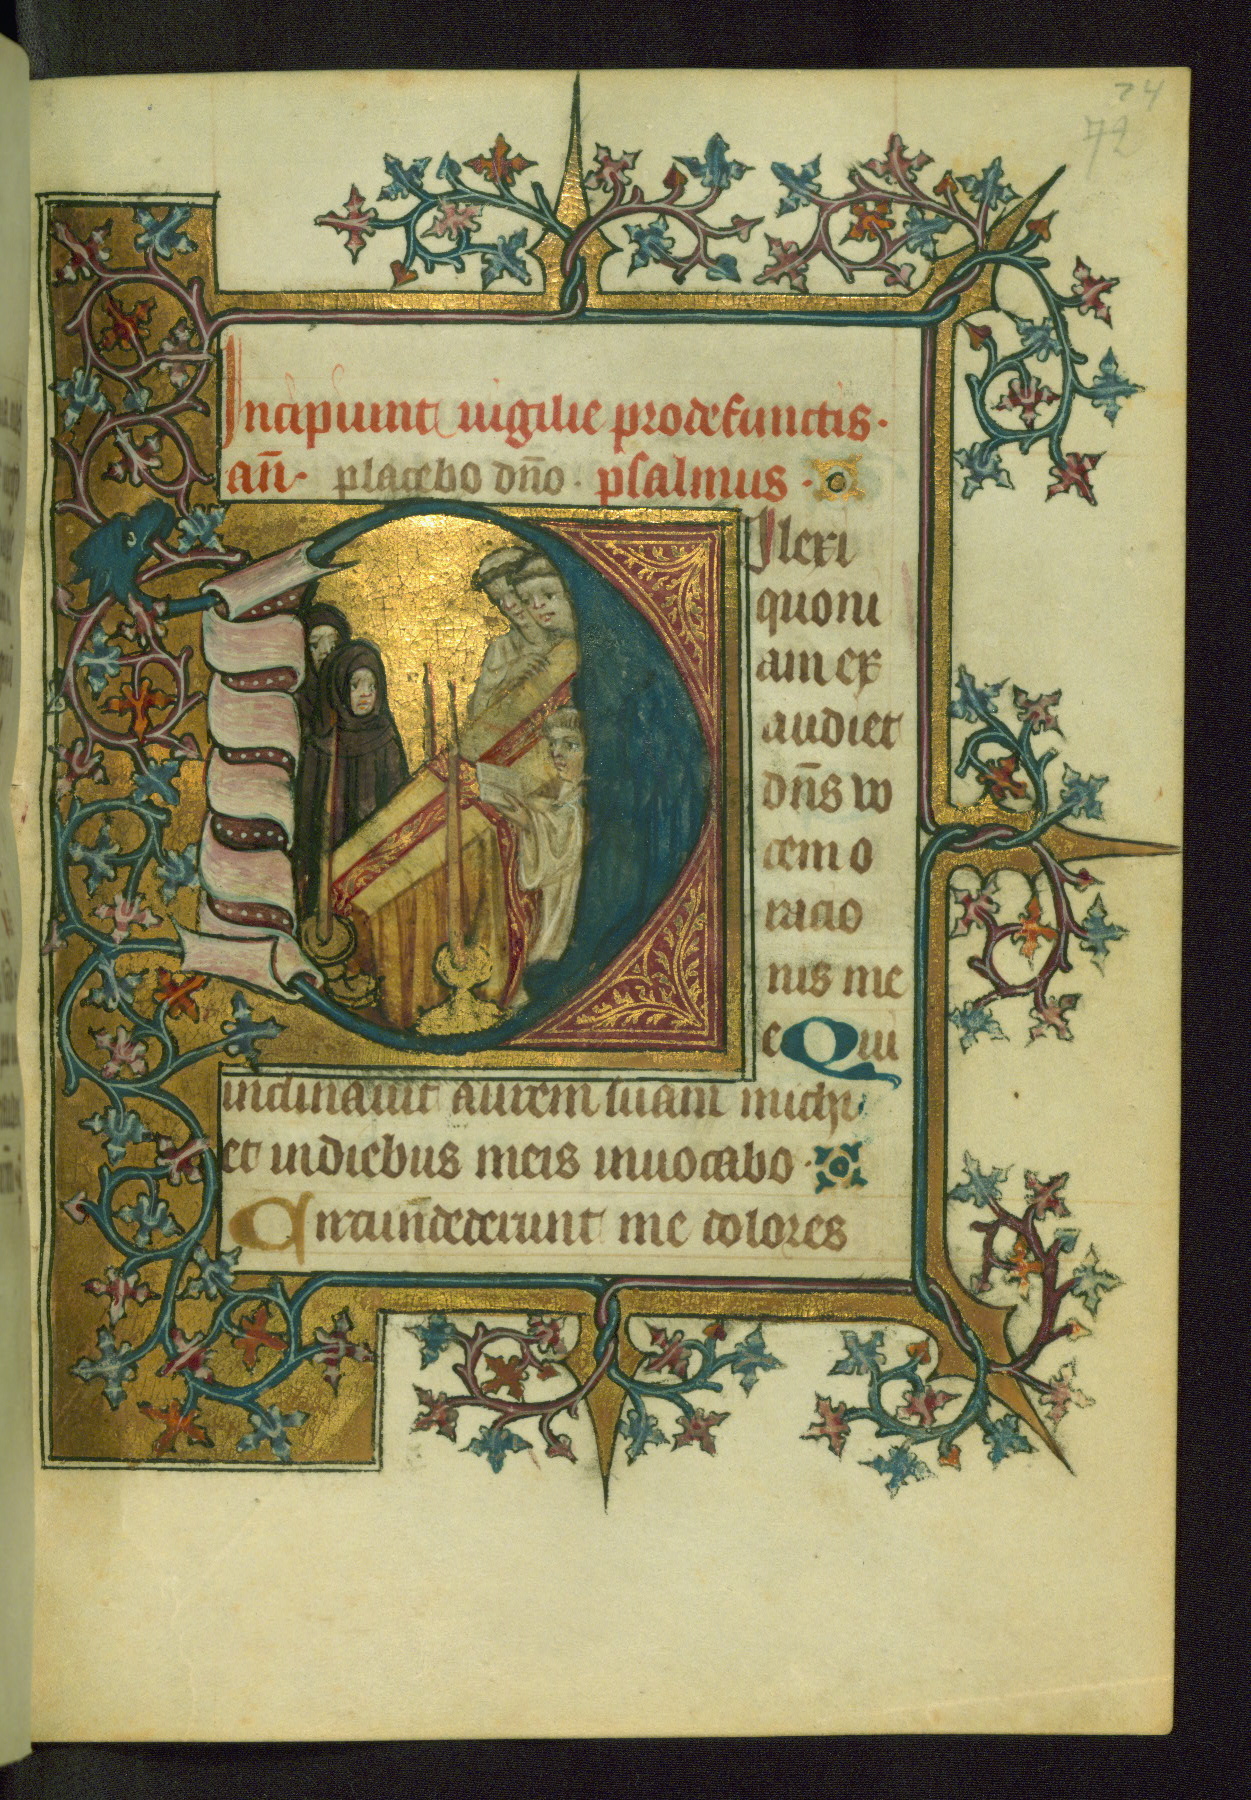 24
72
Incipiunt uigilie pro defunctis·
an̄· placebo dn̄o· psalmus·
DIlexi
quoni
am ex
audiet
dn̄s vo
cem o
racio
nis me
e Qui
inclinauit aurem suam michi
et in diebus meis inuocabo·
Circun̄dederunt me dolores